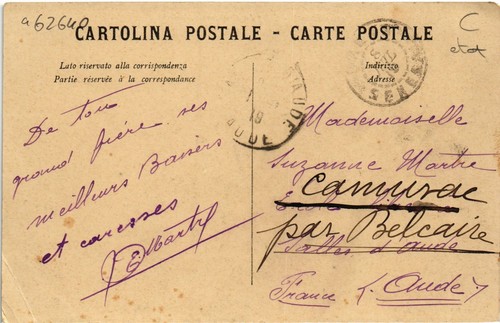 962640
C
CARTOLINA POSTALE - CARTE POSTALE
Lato riservato alla corrispondenza
Partie réservée à la correspondance
Indirizzo
Adresse
AUDE
De ton
grand frère ses
meilleurs Baisers
et caresses
Mademoiselle
Suzanne Martre
Camurac
par Belcaire
Salles d'Aude
France (Aude)